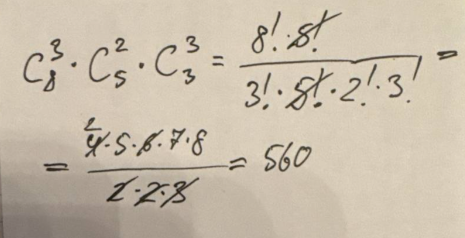 C₈³ · C₅² · C₃³ = 8! · 5! / 3! · 5! · 2! · 3! =
= ²4 · 5 · 6 · 7 · 8 / 2 · 2 · 3 = 560